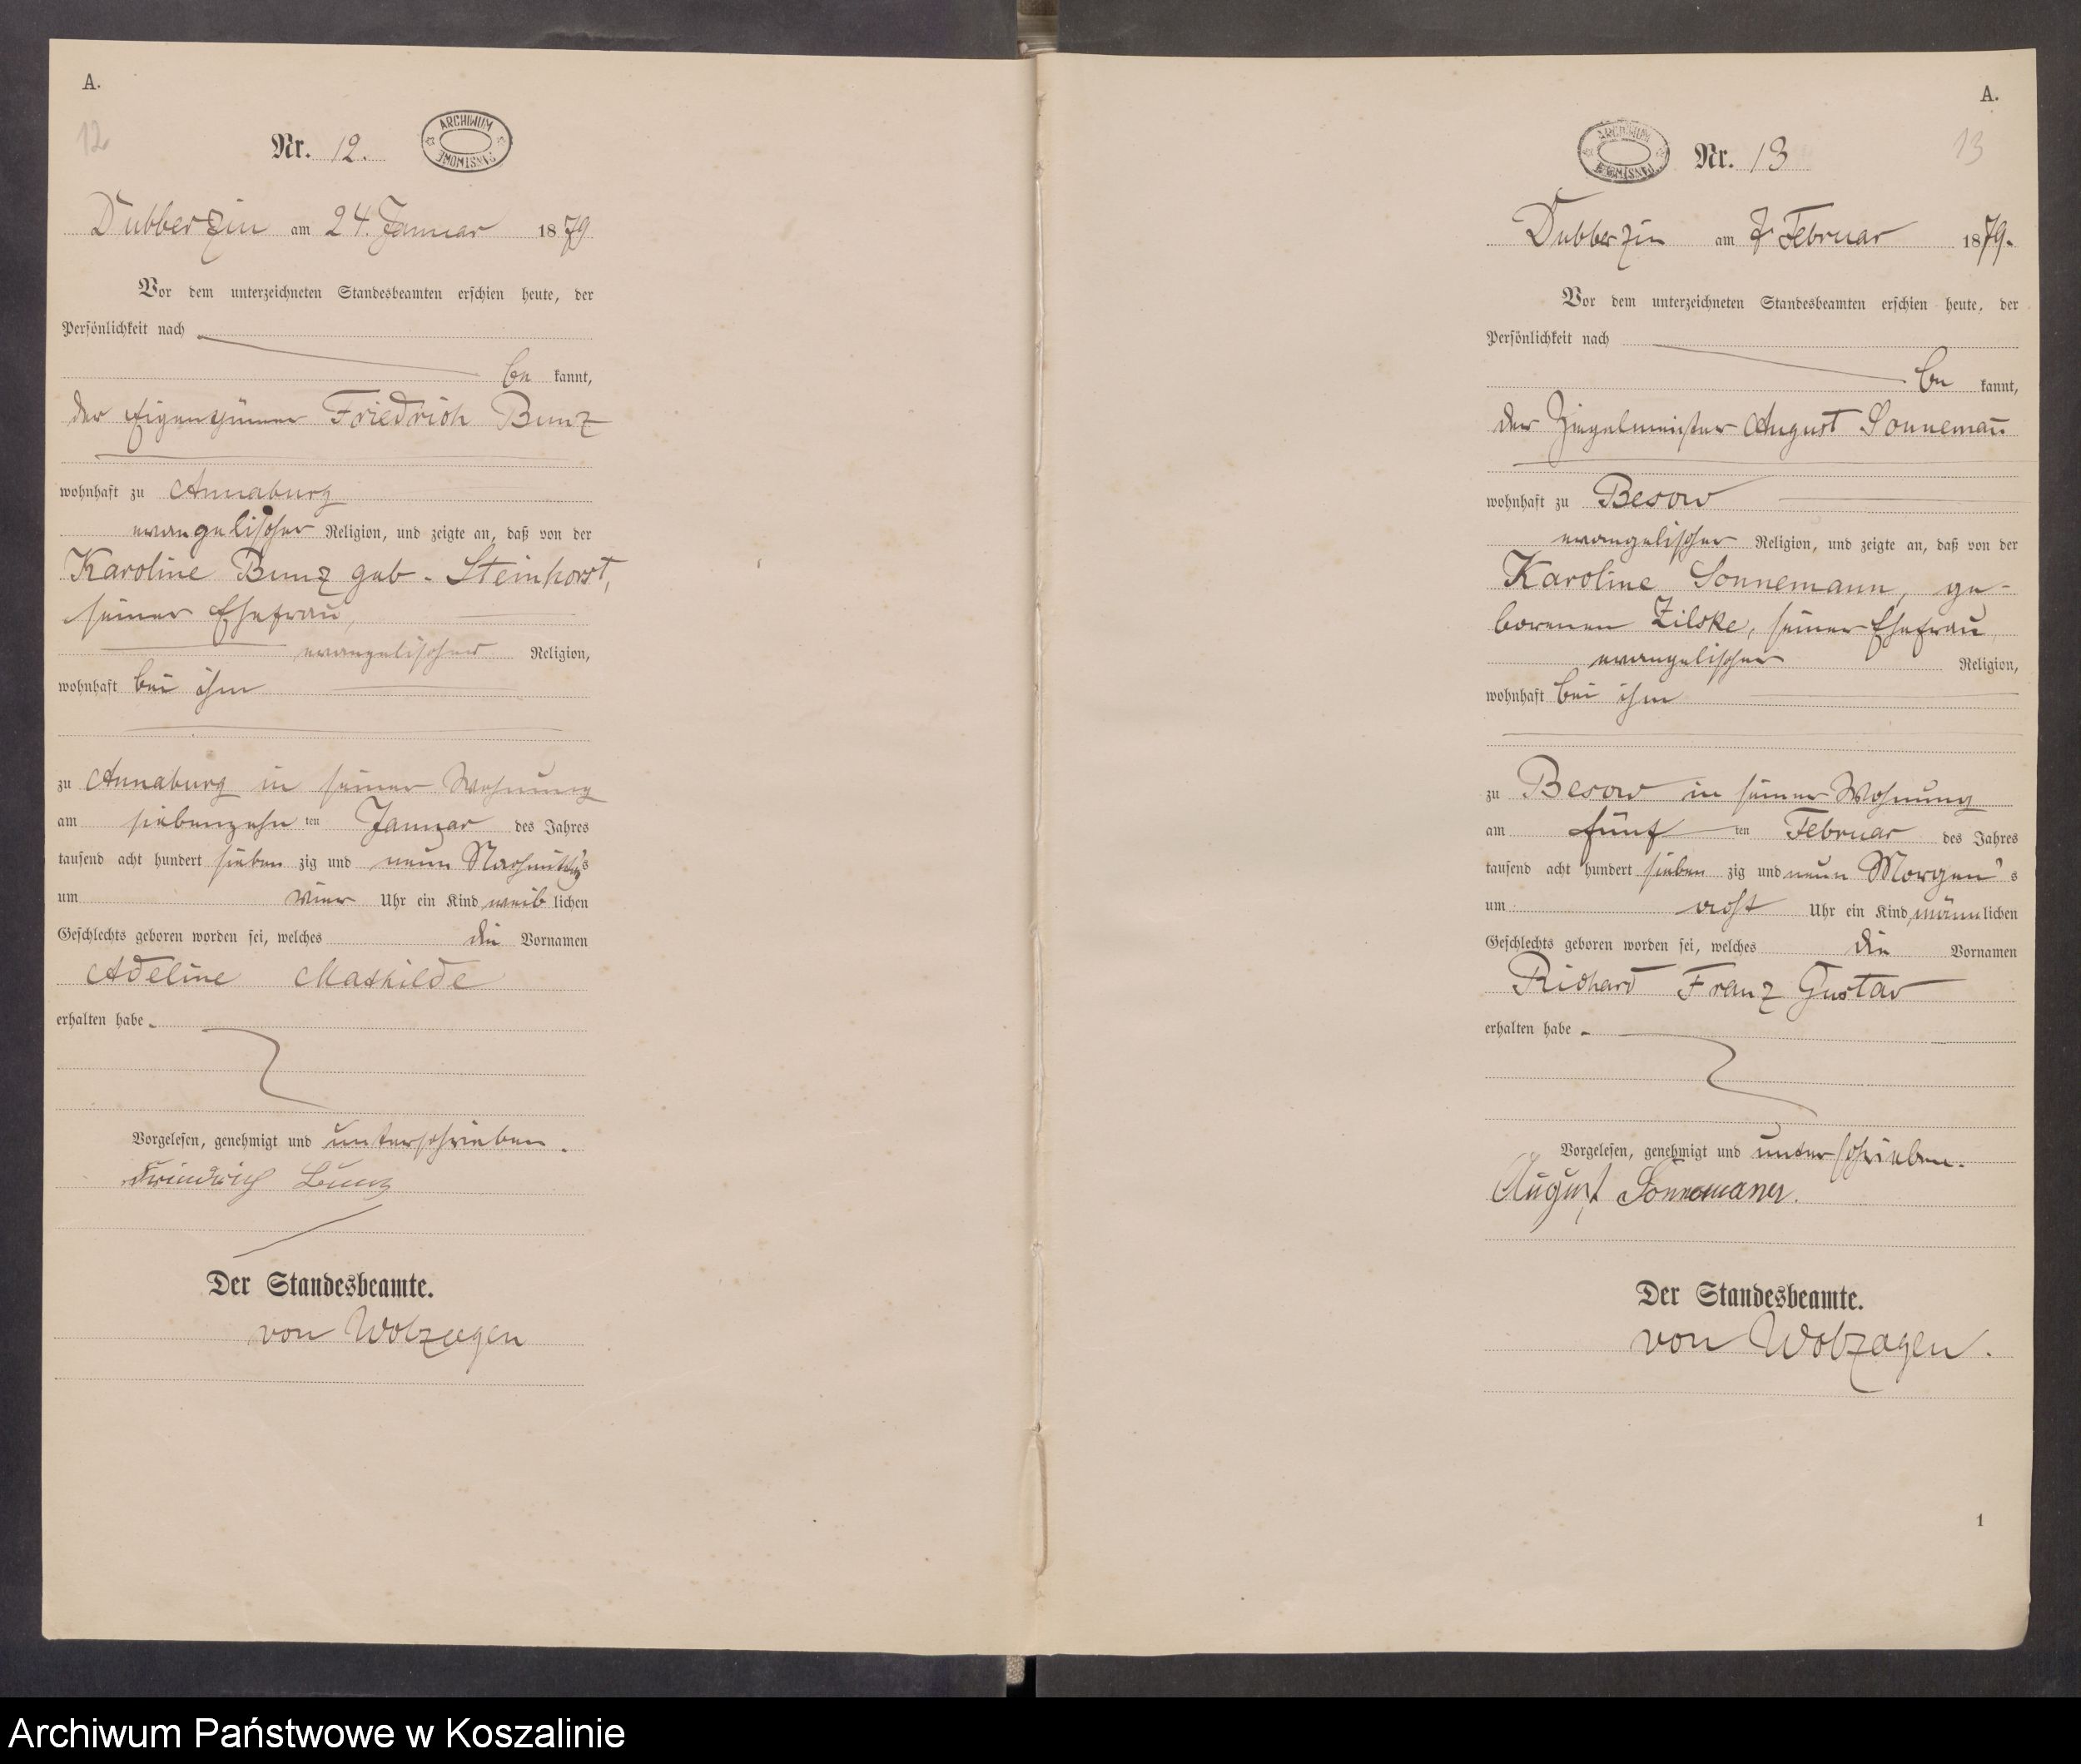 A.
12
Nr. 12.
ARCHIWUM PAŃSTWOWE
Dubberzin am 24. Januar 1879
Vor dem unterzeichneten Standesbeamten erschien heute, der
Persönlichkeit nach
be kannt,
der Eigenthümer Friedrich Bunz
wohnhaft zu Annaburg
evangelischer Religion, und zeigte an, daß von der
Karoline Bunz geb. Steinhorst,
seiner Ehefrau,
evangelischer Religion,
wohnhaft bei ihm
zu Annaburg in seiner Wohnung
am siebenzehn ten Januar des Jahres
tausend acht hundert sieben zig und neun Nachmittags
um vier Uhr ein Kind weib lichen
Geschlechts geboren worden sei, welches die Vornamen
Adeline Mathilde
erhalten habe.
Vorgelesen, genehmigt und unterschrieben.
Friedrich Bunz
Der Standesbeamte.
von Wolzogen
A.
13
ARCHIWUM PAŃSTWOWE
Nr. 13
Dubberzin am 7. Februar 1879.
Vor dem unterzeichneten Standesbeamten erschien heute, der
Persönlichkeit nach
be kannt,
der Ziegelmeister August Sonnemañ
wohnhaft zu Besow
evangelischer Religion, und zeigte an, daß von der
Karoline Sonnemann, ge-
borenen Zilske, seiner Ehefrau
evangelischer Religion,
wohnhaft bei ihm
zu Besow in seiner Wohnung
am fünf ten Februar des Jahres
tausend acht hundert sieben zig und neun Morgen s
um acht Uhr ein Kind männ lichen
Geschlechts geboren worden sei, welches die Vornamen
Richard Franz Gustav
erhalten habe.
Vorgelesen, genehmigt und unterschrieben.
August Sonnemann.
Der Standesbeamte.
von Wolzogen.
1
Archiwum Państwowe w Koszalinie